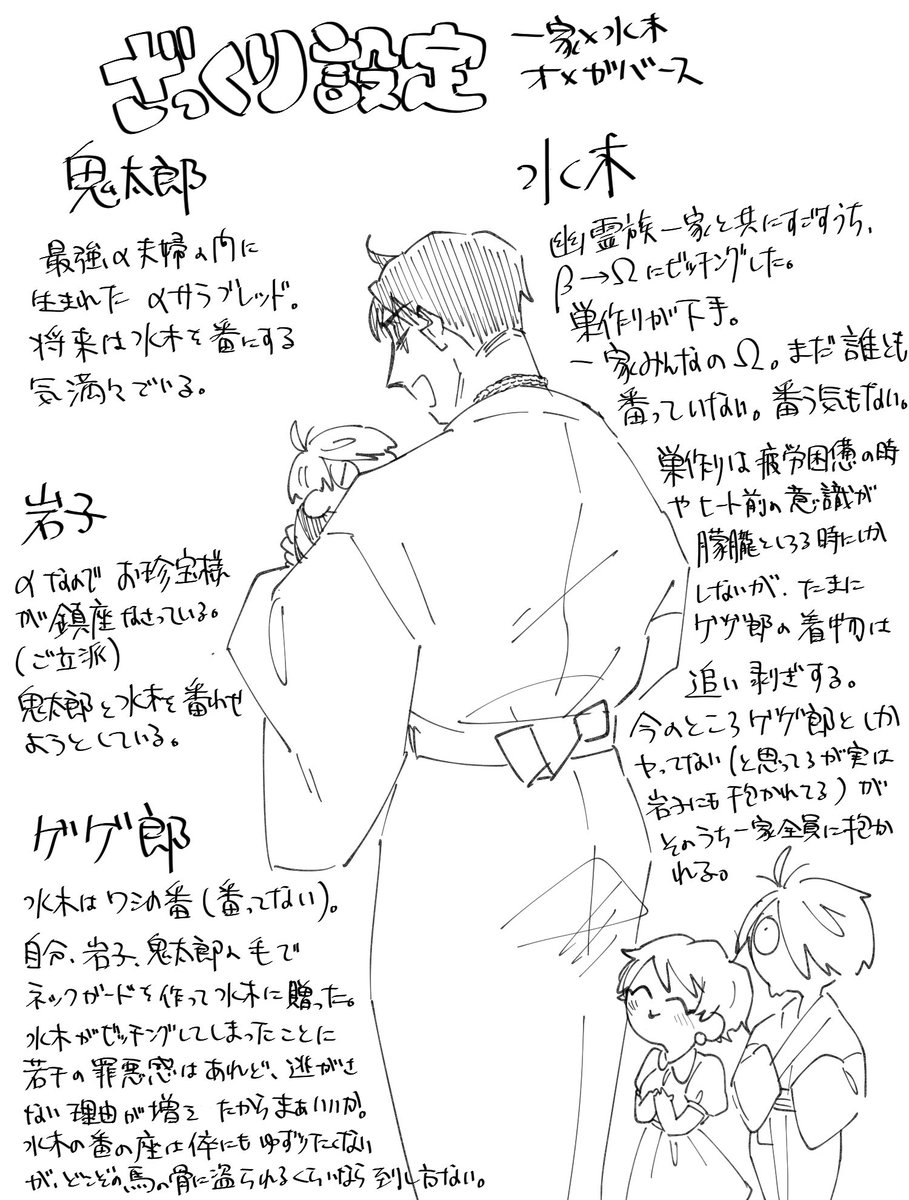 ざっくり設定
一家×水木
オメガバース
鬼太郎
最強α夫婦の内に
生まれたαサラブレッド。
将来は水木を番にする
気満々でいる。
岩子
αなので お珍宝様
が鎮座なさっている。
(ご立派)
鬼太郎と水木を番わせ
ようとしている。
ゲゲ郎
水木はワシの番(番ってない)。
自分、岩子、鬼太郎の毛で
ネックガードを作って水木に贈った。
水木がビッチングしてしまったことに
若干の罪悪感はあれど、逃がさ
ない理由が増えたからまぁいいか。
水木の番の座は倅にもゆずりたくない
が、どこぞの馬の骨に盗られるくらいなら致し方ない。
水木
幽霊族一家と共にすごすうち、
β→Ωにビッチングした。
巣作りが下手。
一家みんなのΩ。まだ誰とも
番っていない。番う気もない。
巣作りは疲労困憊の時
やヒート前の意識が
朦朧としてる時にしか
しないが、たまに
ゲゲ郎の着物は
追い剥ぎする。
今のところゲゲ郎としか
ヤってない(と思ってるが実は
岩子にも抱かれてる)が
そのうち一家全員に抱か
れる。